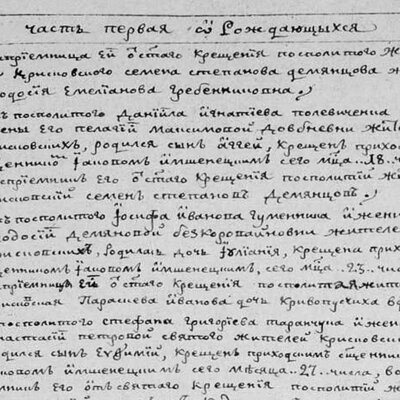 часть первая ѿ Рождающыхся
спрїемница ей ѿ стаго Крещенїя посполитого Ж
Крисковского семена степанова демянцова ж
одосїя Емелїанова Гребенниковна
ъ посполитого Данїила Игнатїева полевичения
ены его пелагїи Максимовой Довбневни жит
исковскихъ, родился сынъ Аггей, крещенъ прихо
щенникомъ Іаковомъ Имшенецкимъ сего мца 18 ч
спрїемникъ его ѿ стаго Крещенїя посполитїй ж
исковскїй семенъ степановъ Демянцовъ
ъ посполитого Іосифа Иванова гуменника и жен
еодосїи Демяновой безкоровайновни жителе
рисковскихъ, родилась дочь Іулїанїя, крещена при
щенникомъ Іаковомъ Имшенецкимъ, сего мца 23 чис
спрїемница ей ѿ стаго Крещенїя посполитая жит
исковская Параскева Иванова дочь Кривопусчиха в
посполитого стефана григорїева таранчука и жен
настасїи петровой святого жителей крисковс
одился сынъ Еуѳимїй, крещенъ приходскимъ сщенни
ковомъ Имшенецкимъ сего месяца 27 числа, во
мникъ его отъ святаго Крещенїя посполитїй ж